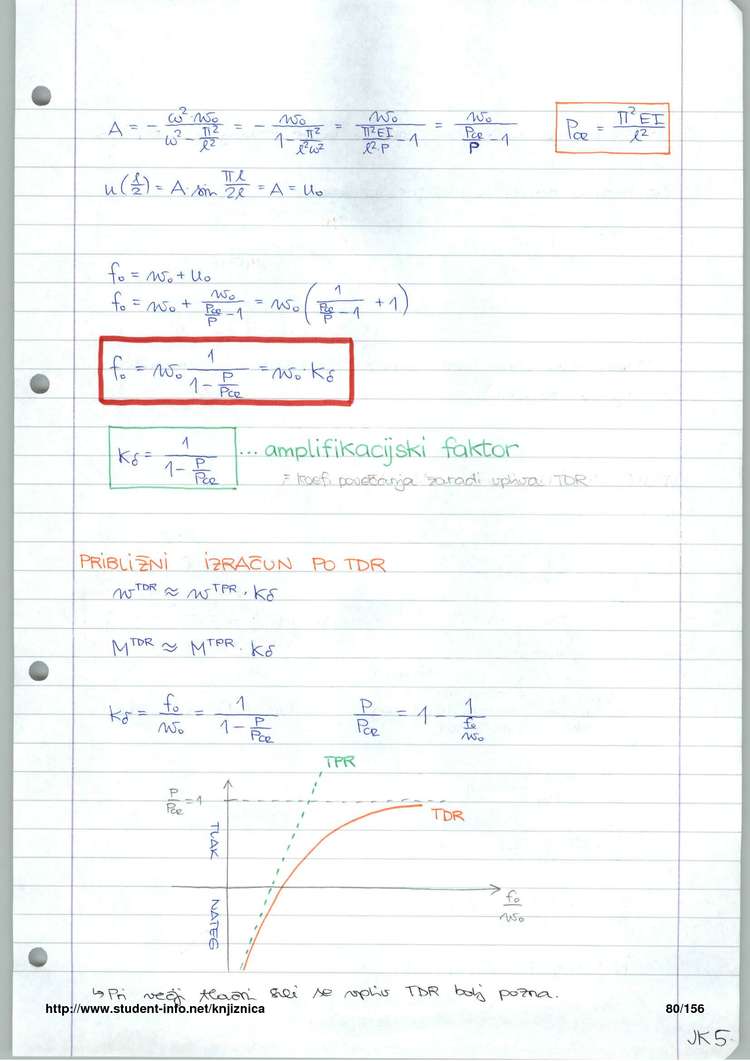 A = - ω²·w₀ / (ω² - π²/ℓ²) = - w₀ / (1 - π²/(ℓ²ω²)) = w₀ / (π²EI/(ℓ²P) - 1) = w₀ / (Pcr/P - 1)    Pcr = π²EI / ℓ²
u(ℓ/2) = A·sin πℓ/2ℓ = A = u₀
f₀ = w₀ + u₀
f₀ = w₀ + w₀ / (Pcr/P - 1) = w₀ (1 / (Pcr/P - 1) + 1)
f₀ = w₀ 1 / (1 - P/Pcr) = w₀·Kδ
Kδ = 1 / (1 - P/Pcr) ... amplifikacijski faktor
= koef. povečanja zaradi vpliva TDR
PRIBLIŽNI IZRAČUN PO TDR
w^TDR ≈ w^TPR · Kδ
M^TDR ≈ M^TPR · Kδ
Kδ = f₀/w₀ = 1 / (1 - P/Pcr)    P/Pcr = 1 - 1 / (f₀/w₀)
TPR
P/Pcr = 1
TDR
TLAK
f₀/w₀
NATEG
↳ Pri večji tlačni sili se vpliv TDR bolj pozna.
http://www.student-info.net/knjiznica 80/156
JK 5